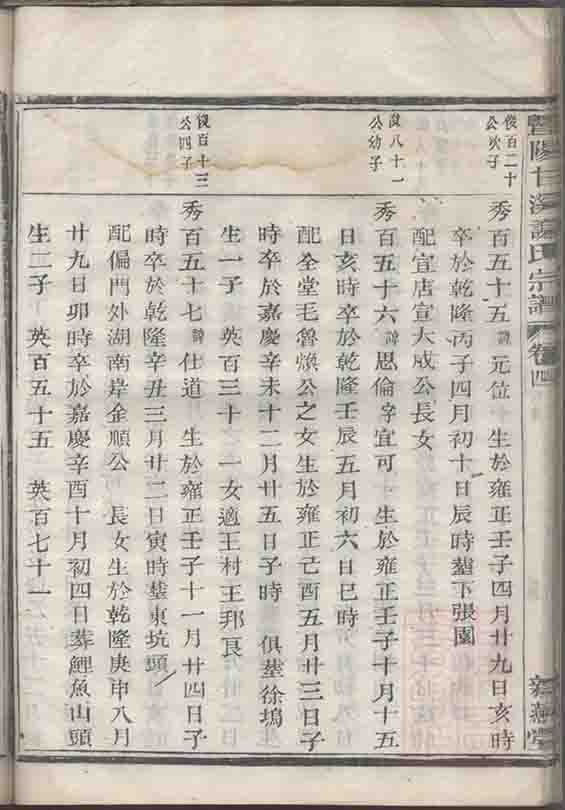 暨陽甘溪諸氏宗譜
卷四
俊百二十
公次子
秀百五十五 諱 元位 生於雍正壬子四月廿九日亥時
卒於乾隆丙子四月初十日辰時塟下張園
配宣店宣大成公長女
俊八十一
公幼子
秀百五十六 諱 思倫 字宜可 生於雍正壬子十月十五
日亥時卒於乾隆壬辰五月初六日巳時
配全堂毛魯煥公之女生於雍正己酉五月廿三日子
時卒於嘉慶辛未十二月廿五日子時 俱塟徐塢
生一子 英百三十 一女適王村王邦良
俊百十三
公四子
秀百五十七 諱 仕道 生於雍正壬子十一月廿四日子
時卒於乾隆辛丑三月廿二日寅時塟東坑頭
配偏門外湖南岸金順公 長女生於乾隆庚申八月
廿九日卯時卒於嘉慶辛酉十月初四日葬鯉魚山頭
生二子 英百五十五 英百七十一